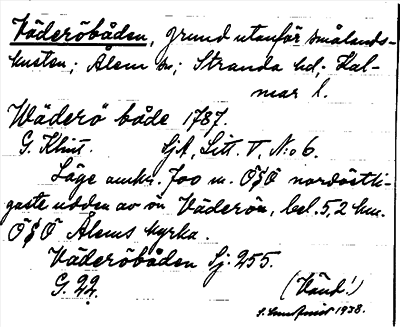 Väderöbåden, grund utanför smålands-
kusten; Ålem sn; Stranda hd; Kal-
mar l.
Wäderö både 1787.
G. Klint. Sjk, Litt. V, No 6.
Läge omkr. 700 m. OSO nordöstli-
gaste udden av ön Väderön, bel. 5,2 km.
OSO Ålems kyrka.
Väderöbåden Sj. 255.
G. 22.
(Vänd!)
1938.